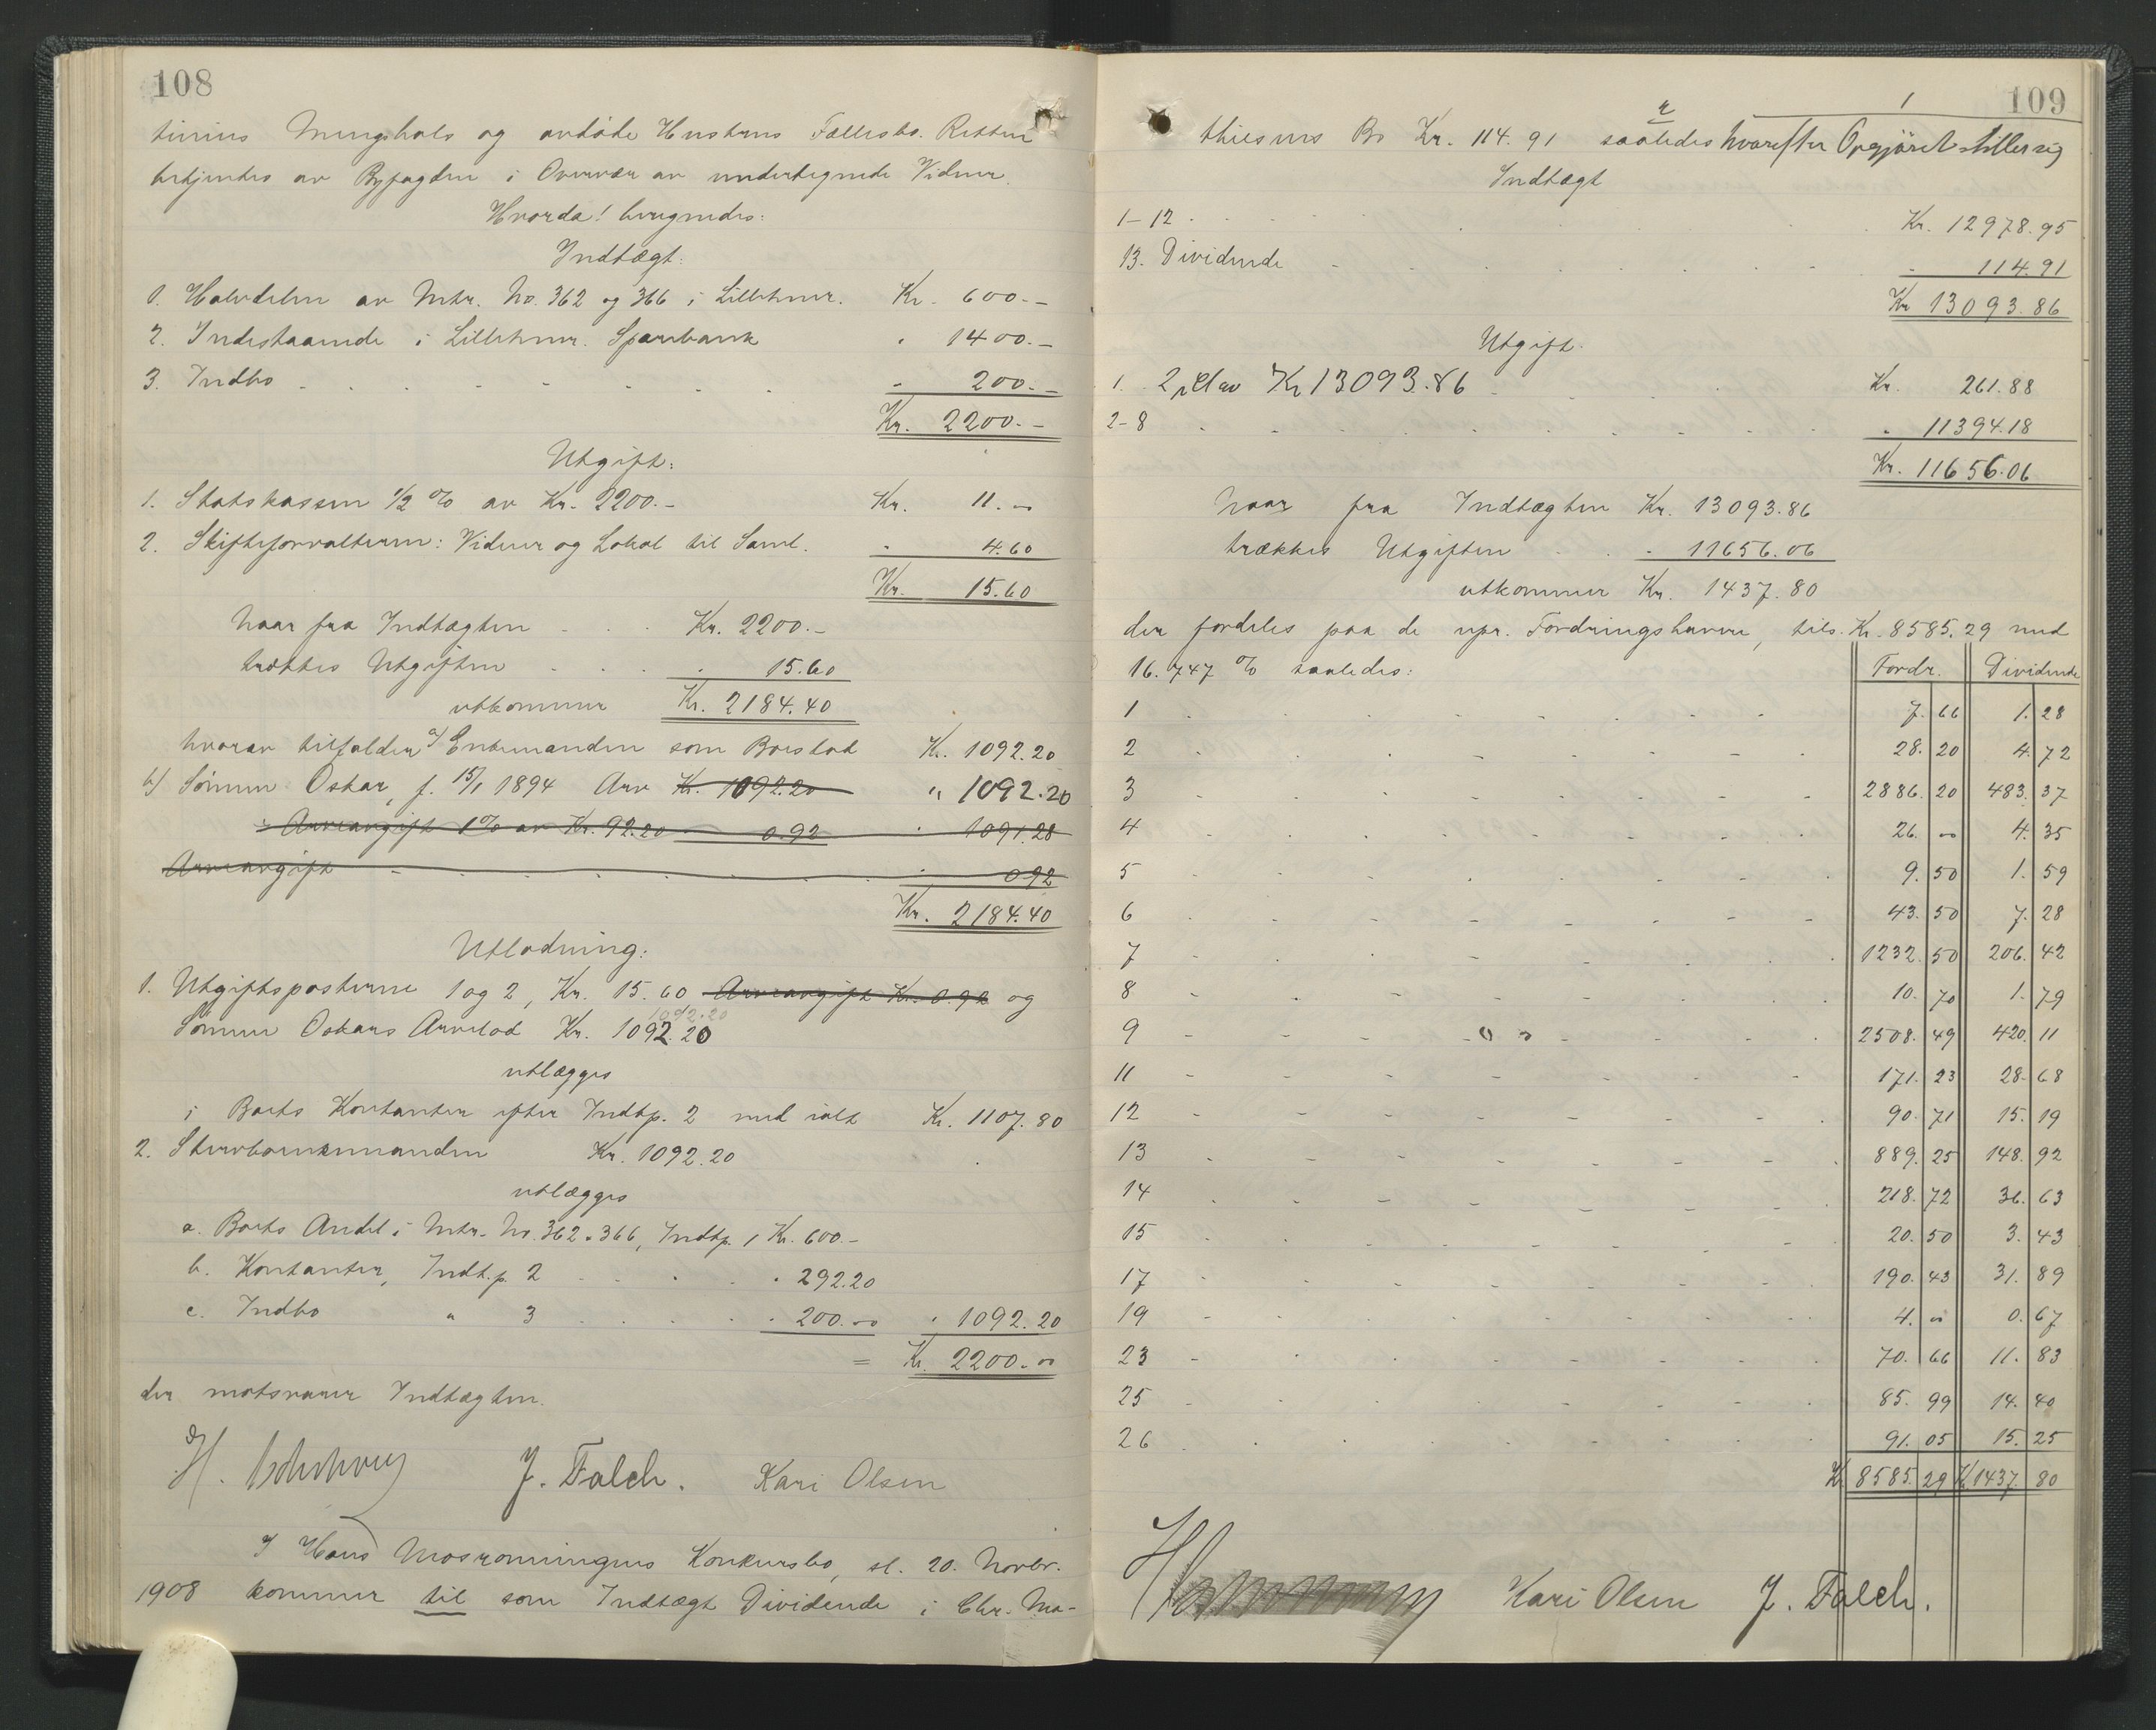 108
tinius Mengshols og avdøde Hustrus Fællesbo. Retten
betjentes av Byfogden i Overvær av undertegnede Vidner.
Hvorda! beregnedes:
Indtægt:
1. Halvdelen av Mtr. No. 362 og 366 i Lillehmr. Kr. 600.-
2. Indestaaende i Lillehmr. Sparebank " 1400.-
3. Indbo - 200.-
Kr. 2200.-
Utgift:
1. Statskassen 1/2 % av Kr. 2200.- Kr. 11.00
2. Skifteforvalteren: Vidner og Lokal til Saml. - 4.60
Kr. 15.60
Naar fra Indtægten Kr. 2200.-
trækkes Utgiften 15.60
utkommer Kr. 2184.40
hvorav tilfalder a) Enkemanden som Boeslod Kr. 1092.20
b) Sønnen Oskar, f. 15/1 1894 Arv Kr. 1092.20 " 1092.20
÷ Arveavgift 1% av Kr. 92.20 0.92 1091.28
Arveavgift 0.92
Kr. 2184.40
Utlodning:
1. Utgiftsposterne 1 og 2, Kr. 15.60, Arveavgift Kr. 0.92 og
1092.20
Sønnen Oskars Arvelod Kr. 1092.20
utlægges
i Boets Kontanter efter Indtp. 2 med ialt Kr. 1107.80
2. Stervboenkemanden Kr. 1092.20
utlægges
a. Boets Andel i Mtr. No. 362 " 366, Indtp. 1 Kr. 600.-
b. Kontanter, Indt.p. 2 " 292.20
c. Indbo " 3 " 200.00 " 1092.20
= Kr. 2200.00
der motsvarer Indtægten.
J. Falch. Kari Olsen
I Hans Mosrønningens Konkursbo, sl. 20. Novbr.
1908 kommer til som Indtægt Dividende i Chr. Ma-
109
thiesens Bo Kr. 114.91 saaledes hvorefter Opgjøret stiller sig
Indtægt
1-12 Kr. 12978.95
13. Dividende - 114.91
Kr. 13093.86
Utgift.
1. 2 pCt av Kr 13093.86 Kr. 261.88
2-8 " 11394.18
Kr. 11656.06
Naar fra Indtægten Kr. 13093.86
trækkes Utgiften - 11656.06
utkommer Kr. 1437.80
der fordeles paa de upr. Fordringshavere, tils. Kr. 8585.29 med
16.747 % saaledes: Fordr. Dividende
1 7.66 1.28
2 28.20 4.72
3 2886.20 483.37
4 26.00 4.35
5 9.50 1.59
6 43.50 7.28
7 1232.50 206.42
8 10.70 1.79
9 2508.49 420.11
11 171.23 28.68
12 90.71 15.19
13 889.25 148.92
14 218.72 36.63
15 20.50 3.43
17 190.43 31.89
19 4.00 0.67
23 70.66 11.83
25 85.99 14.40
26 91.05 15.25
Kr 8585 29 Kr 1437. 80
Kari Olsen J. Falch.